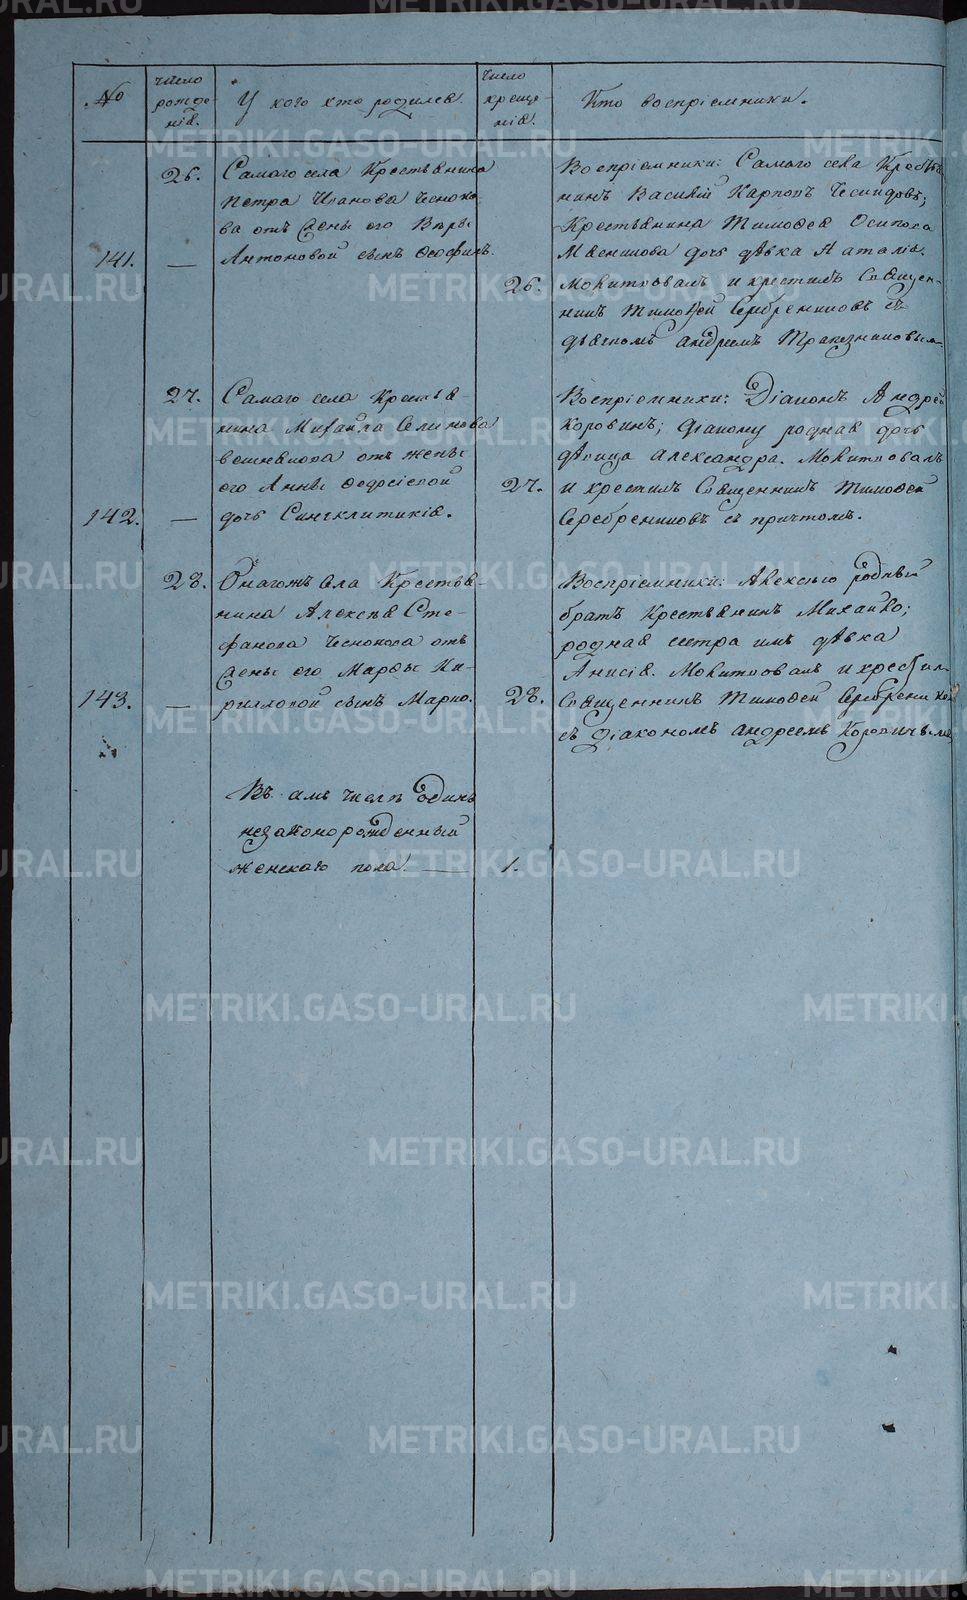 №
число рожде- нія.
У кого кто родился.
число креще- нія.
Кто воспріемники.
26.
Самаго села Крестьянина
Петра Иванова Чесноко-
ва отъ жены его Вѣры
141. — Антоновой сынъ Феофилъ.
Воспріемники: Самаго села Крестья-
нинъ Василій Карповъ
Крестьянина Тимофея Осипова
дочь дѣвка Наталія.
26. Молитвовалъ и крестилъ Священ-
никъ Тимофей Серебрениковъ съ
дьячкомъ Андреемъ Трапезниковымъ.
27.
Самаго села Крестья-
нина Михаила
отъ жены
его Анны
142. — дочь Синклитикія.
Воспріемники: Діаконъ Андрей
Коровинъ; Діакону родная дочь
дѣвица Александра. Молитвовалъ
27. и крестилъ Священникъ Тимофей
Серебрениковъ съ причтомъ.
28.
Онагожъ села Крестья-
нина Алексѣя Сте-
фанова Чеснокова отъ
жены его Марфы Ки-
143. — риловой сынъ Марко.
Воспріемники: Алексѣю родный
братъ Крестьянинъ Михайло;
родная сестра имъ дѣвка
Анисія. Молитвовалъ и крестилъ
28. Священникъ Тимофей Серебрениковъ
съ Діакономъ Андреемъ Коровинымъ
Въ числѣ одинъ
незаконорожденный
женскаго пола. — 1.
METRIKI.GASO-URAL.RU